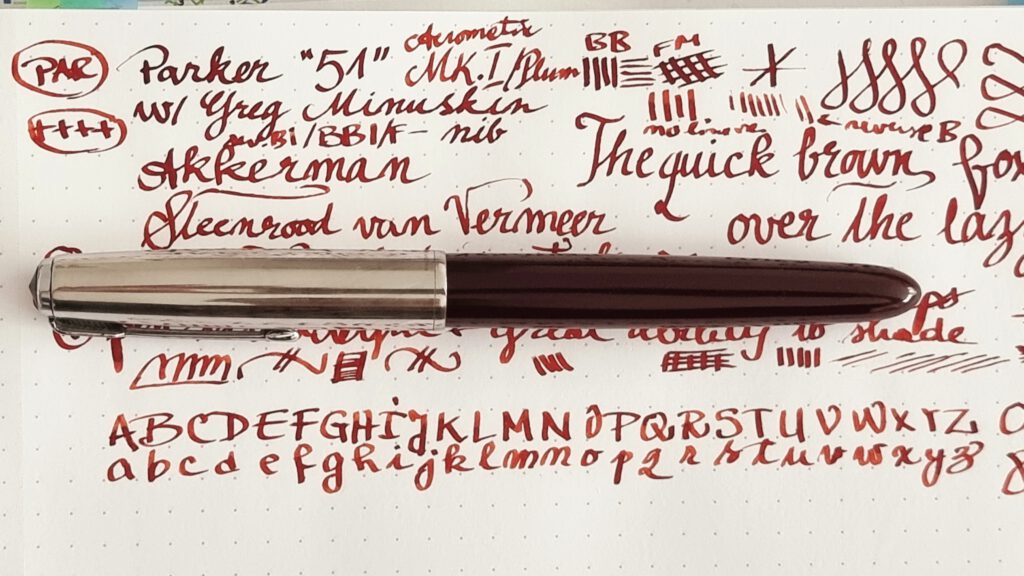 PAR Parker "51" Aerometric MK.I/Plum BB FM
++++ w/ Greg Minuskin BB/F nib
reverse B
Akkerman The quick brown fox
Steenrood van Vermeer over the laz
great ability to shade
ABCDEFGHIJKLMNOPQRSTUVWXYZ
abcdefghijklmnopqrstuvwxyz